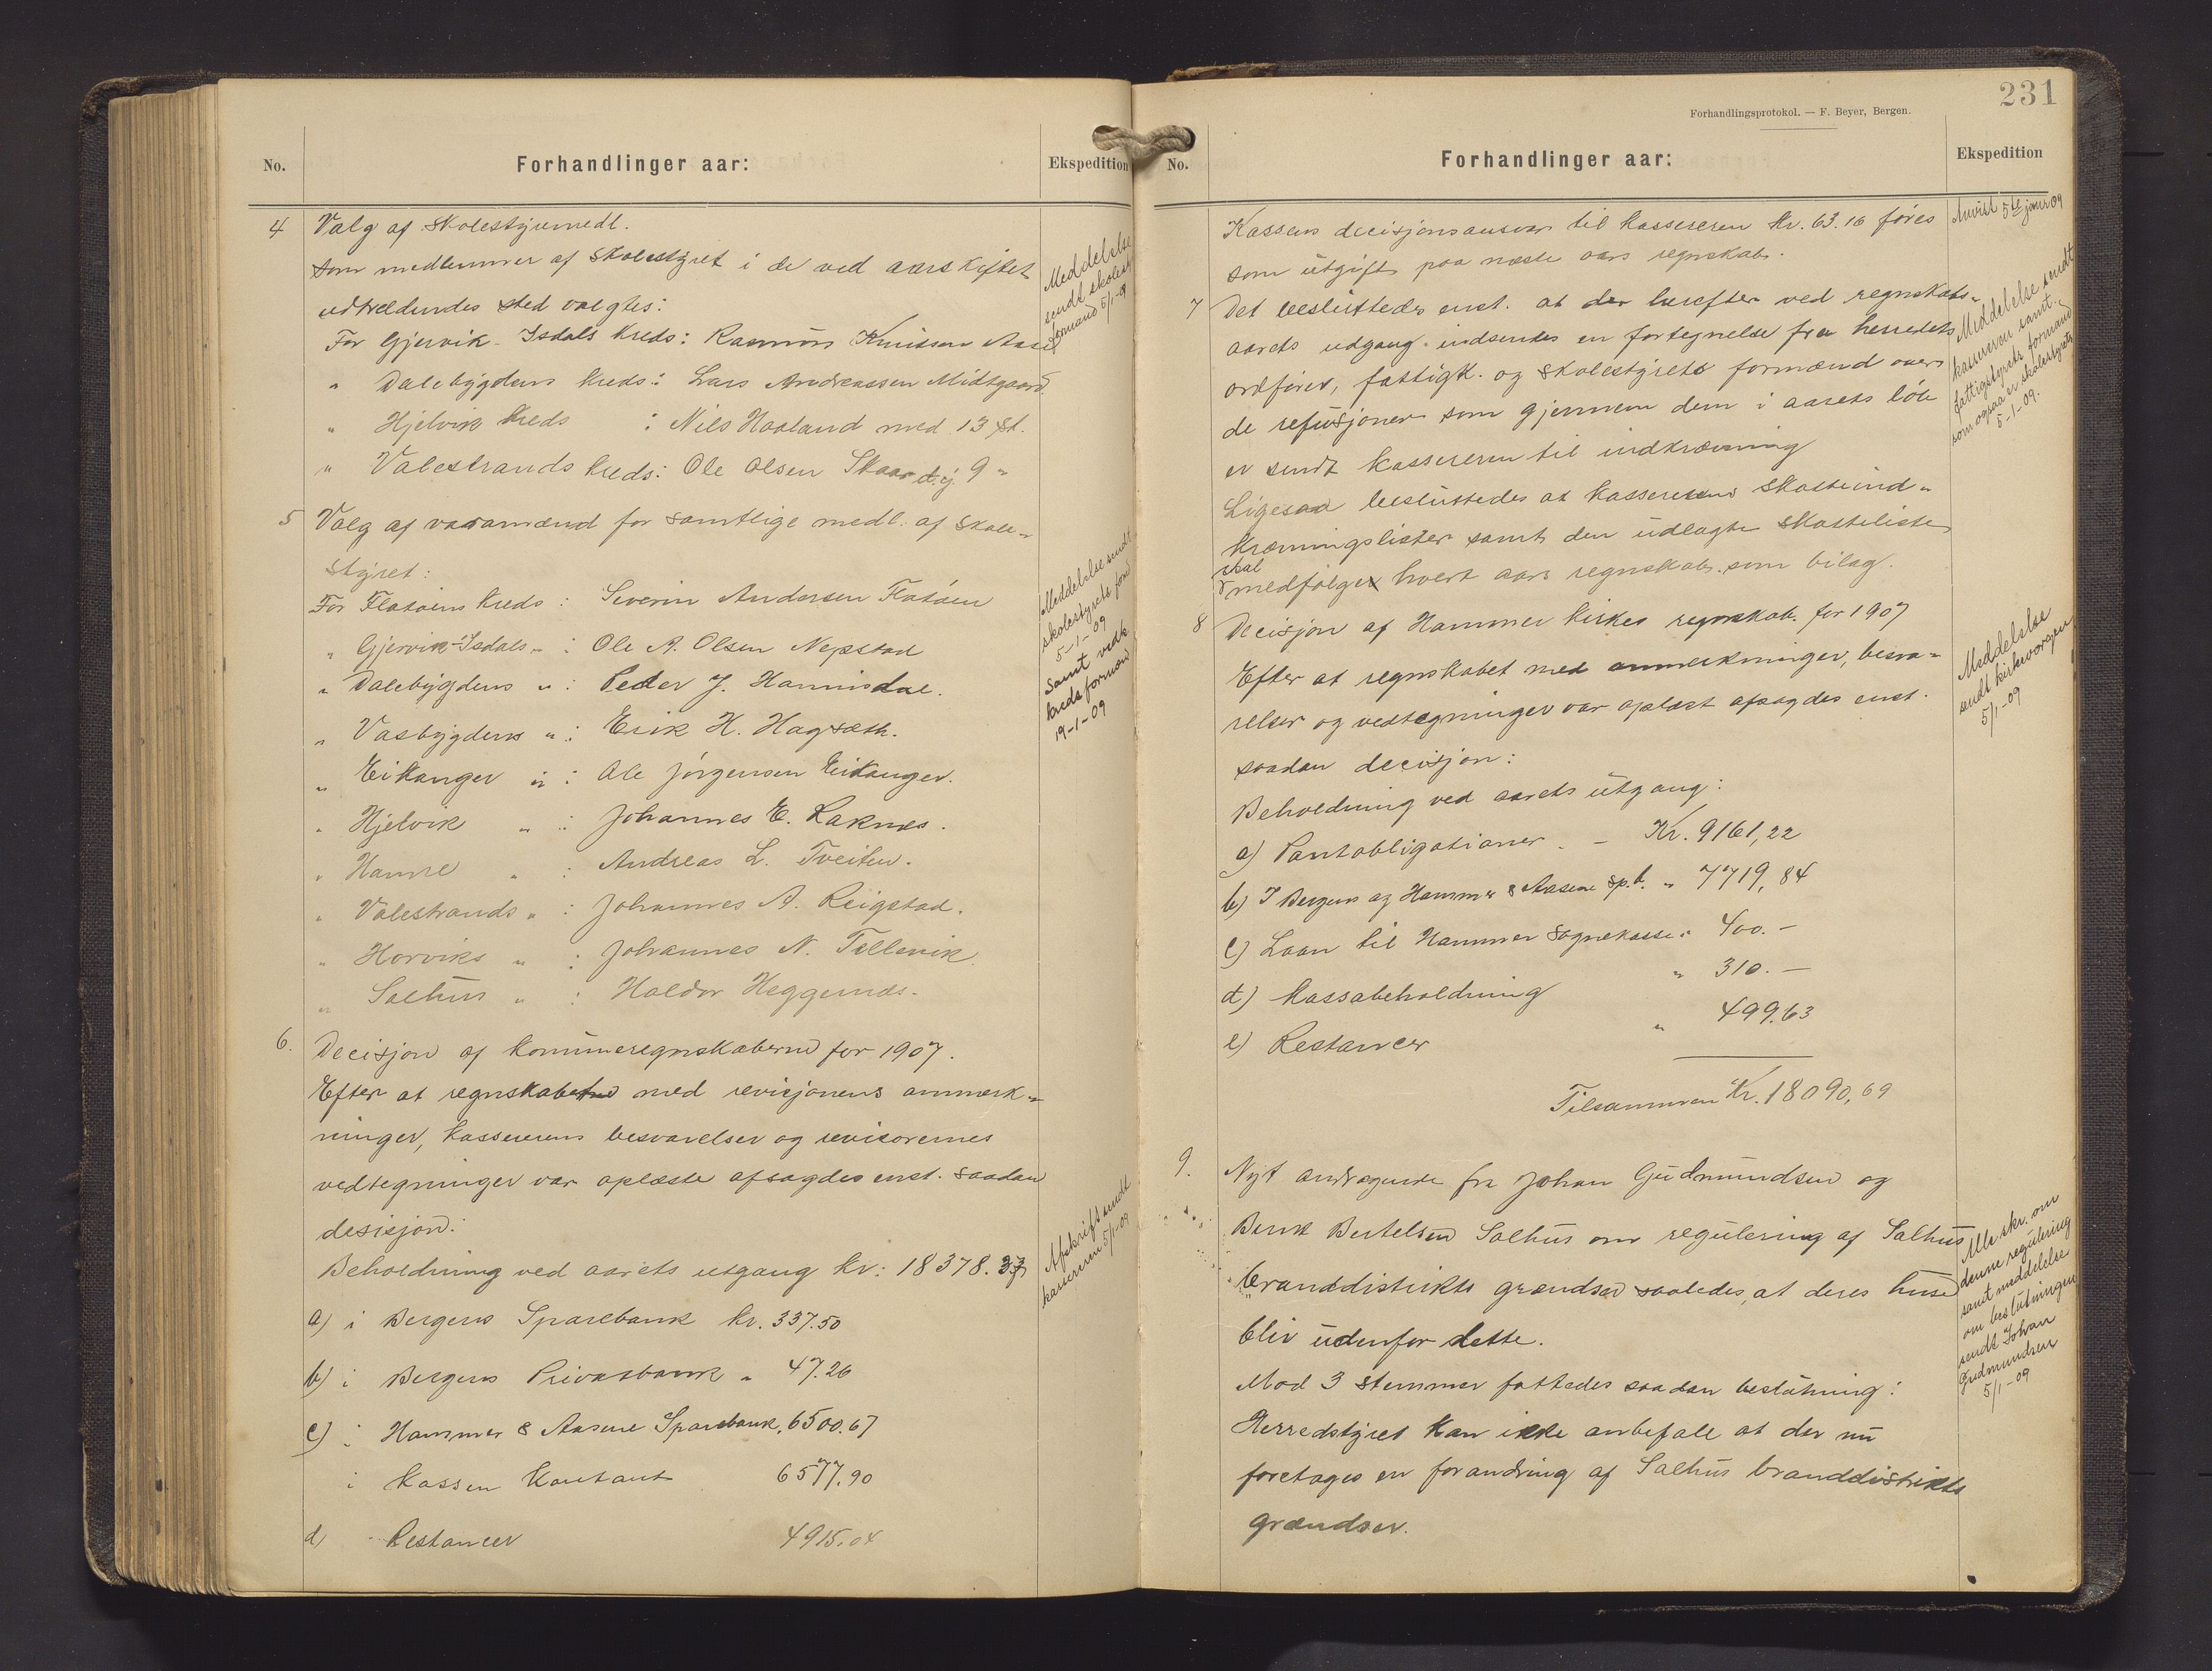 No.
Forhandlinger aar:
Ekspedition
4 Valg af Skolestyremedl.
Som medlemmer af Skolestyret i de ved aarsskiftet
udtrædendes sted valgtes:
For Gjervik-Isdals kreds: Rasmus Knutsen Aase
" Dalebygdens kreds: Lars Andreassen Midtgaard.
" Hjelvik kreds : Nils Haaland med 13 st.
" Valestrands kreds: Ole Olsen Skaar 9 "
Meddelelse
sendt skolest
formand 5/1-09
5 Valg af varamænd for samtlige medl. af Skole-
styret:
For Flatøens kreds : Severin Andersen Flatøen
" Gjervik-Isdals " : Ole A. Olsen Nepstad
" Dalebygdens " : Peder J. Hannisdal.
" Vasbygdens " : Erik H. Hagsæth.
" Eikanger " : Ole Jørgensen Eikanger.
" Hjelvik " : Johannes E. Laknes.
" Hamre " : Andreas L. Tveiten.
" Valestrands " : Johannes A. Reigstad.
" Horviks " : Johannes N. Tellevik.
" Salhus " : Haldor Heggernæs.
Meddelelse sendt
skolestyrets form
5-1-09
Samt vedk
kredsformænd
19-1-09
6. Decisjon af kommuneregnskaberne for 1907.
Efter at regnskabet med revisjonens anmerk-
ninger, kassererens besvarelser og revisorernes
vedtegninger var oplæste afsagdes enst. saadan
desisjon:
Beholdning ved aarets utgang kr: 18378.37
a) i Bergens Sparebank kr. 337.50
b) i Bergens Privatbank " 47.26
c) i Hammer & Aasene Sparebank, 6500.67
i Kassen Kontant 6577.90
d) Restancer 4915.04
Afskrift sendt
kassereren 5/1-09
231
Forhandlingsprotokol. — F. Beyer, Bergen.
No.
Forhandlinger aar:
Ekspedition
Kassens decisjonsansvar til kassereren kr. 63.16 føres
som utgift paa næste aars regnskab.
Anvist 5te janr 09
7 Det besluttedes enst. at der herefter ved regnskabs-
aarets udgang indsendes en fortegnelse fra herredets
ordfører, fattigk. og Skolestyrets formænd over
de refusjoner som gjennem dem i aarets løb
er sendt kassereren til indkrævning
Ligesaa besluttedes at kassererens Skatteind-
krævningslister samt den udlagte Skatteliste
skal
medfølger hvert aars regnskab som bilag.
Meddelelse sendt
kassereren samt
fattigstyrets formand
som ogsaa er skolestyrets
5-1-09.
8 Decisjon af Hammer kirkes regnskab for 1907
Efter at regnskabet med anmerkninger, besva-
relser og vedtegninger var oplæst afsagdes enst.
saadan decisjon:
Beholdning ved aarets utgang:
a) Pantobligationer. - Kr. 9161,22
b) I Bergens og Hammer & Aasene sp.b. " 7719,84
c) Laan til Hammer Sognekasse " 400.-
d) Kassabeholdning " 310.-
e) Restancer " 499.63
Tilsammen Kr. 18090,69
Meddelelse
sendt kirkevergen
5/1-09
9. Nyt andragende fra Johan Gudmundsen og
Berik Bertelsen Salhus om regulering af Salhus
branddistrikts grændser saaledes, at deres huse
bliv udenfor dette.
Mod 3 stemmer fattedes saadan beslutning:
Herredstyret kan ikke anbefale at der nu
foretages en forandring af Salhus branddistrikts
grændser.
Alle skr. om
denne regulering
samt meddelelse
om beslutningen
sendt Johan
Gudmundsen
5/1-09